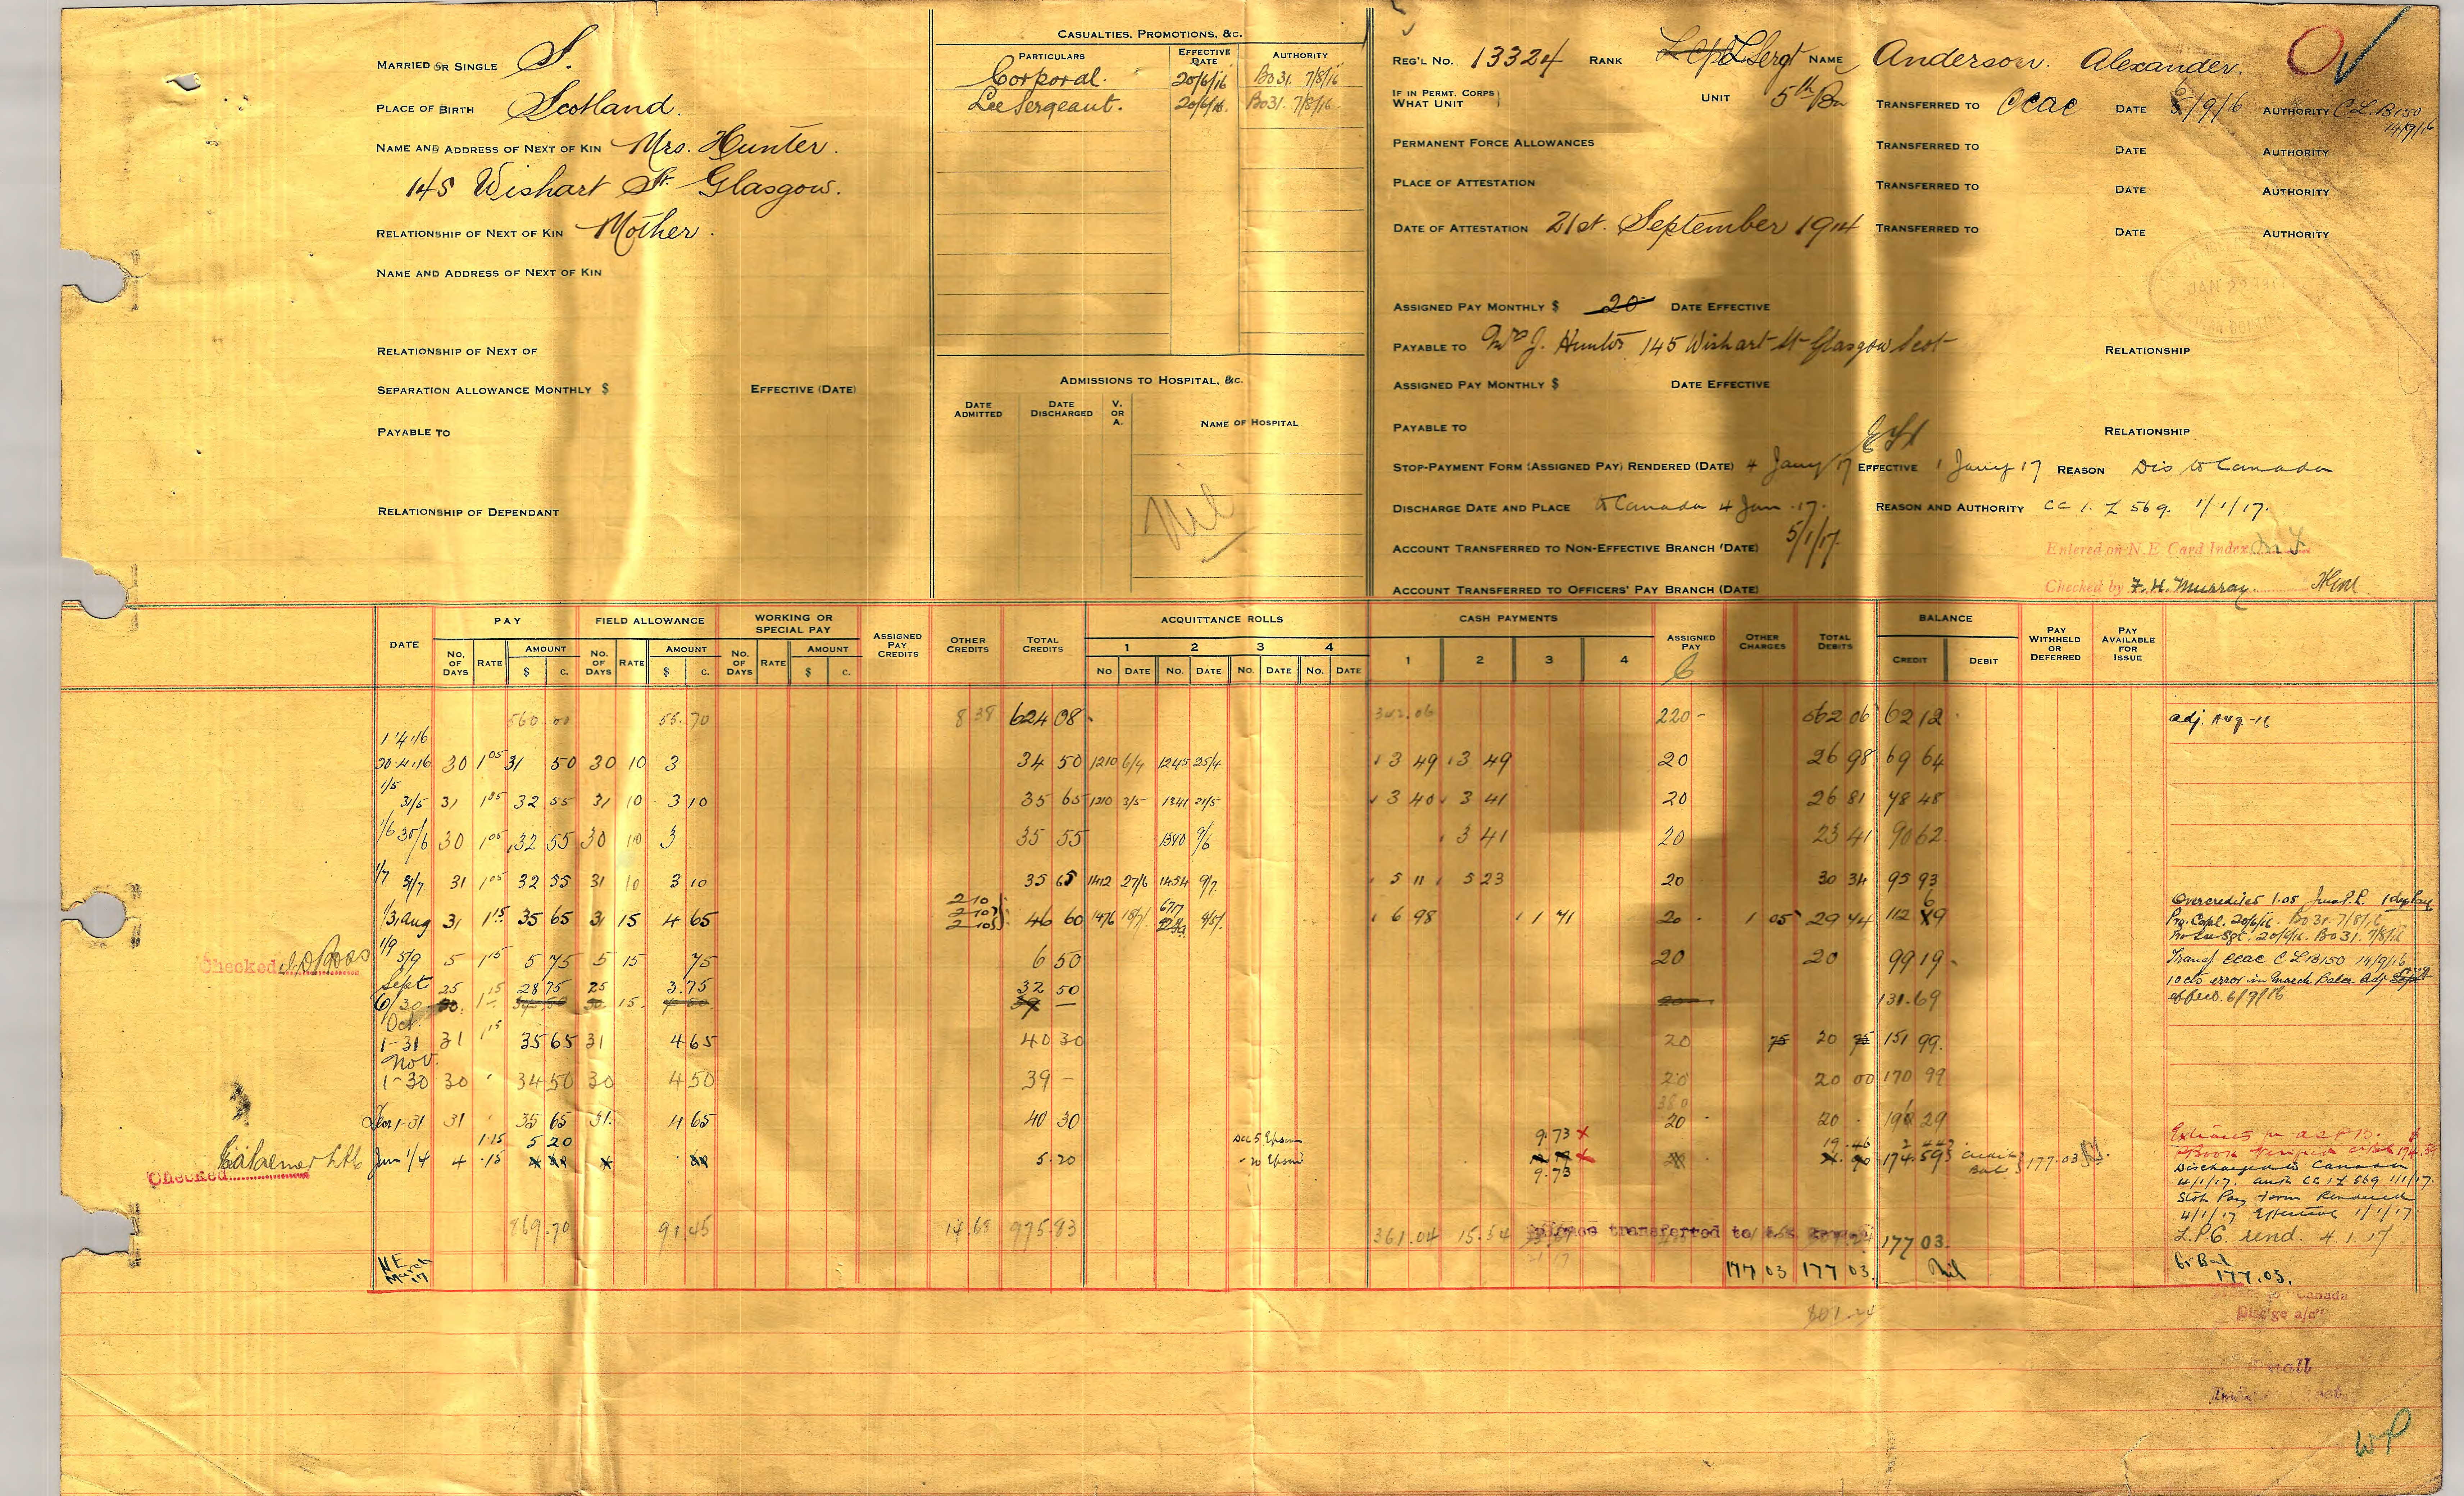 MARRIED OR SINGLE S.
PLACE OF BIRTH Scotland.
NAME AND ADDRESS OF NEXT OF KIN Mrs. Hunter.
145 Wishart St. Glasgow.
RELATIONSHIP OF NEXT OF KIN Mother.
NAME AND ADDRESS OF NEXT OF KIN
RELATIONSHIP OF NEXT OF
SEPARATION ALLOWANCE MONTHLY $ EFFECTIVE (DATE)
PAYABLE TO
RELATIONSHIP OF DEPENDANT
CASUALTIES, PROMOTIONS, &C.
PARTICULARS EFFECTIVE DATE AUTHORITY
Corporal. 20/6/16 Bo31. 7/8/16
Lce Sergeant. 20/6/16. Bo31. 7/8/16.
ADMISSIONS TO HOSPITAL, &C.
DATE ADMITTED DATE DISCHARGED V. OR A. NAME OF HOSPITAL
Nil
REG'L NO. 13324 RANK L Sergt NAME Anderson. Alexander.
IF IN PERMT. CORPS WHAT UNIT UNIT 5th Bn TRANSFERRED TO CCAC DATE 6/9/16 AUTHORITY C.L.B150 14/9/16
PERMANENT FORCE ALLOWANCES TRANSFERRED TO DATE AUTHORITY
PLACE OF ATTESTATION TRANSFERRED TO DATE AUTHORITY
DATE OF ATTESTATION 21st. September 1914 TRANSFERRED TO DATE AUTHORITY
JAN 22 191
ASSIGNED PAY MONTHLY $ 20 DATE EFFECTIVE
PAYABLE TO Mrs J. Hunter 145 Wishart St Glasgow Scot RELATIONSHIP
ASSIGNED PAY MONTHLY $ DATE EFFECTIVE
PAYABLE TO RELATIONSHIP
STOP-PAYMENT FORM (ASSIGNED PAY) RENDERED (DATE) 4 Jany 17 EFFECTIVE 1 Jany 17 REASON Dis to Canada
DISCHARGE DATE AND PLACE to Canada 4 Jan. 17. REASON AND AUTHORITY CC 1. Z 569. 1/1/17.
ACCOUNT TRANSFERRED TO NON-EFFECTIVE BRANCH (DATE) 5/1/17. Entered on N.E. Card Index
ACCOUNT TRANSFERRED TO OFFICERS' PAY BRANCH (DATE) Checked by F. H. Murray
DATE PAY FIELD ALLOWANCE WORKING OR SPECIAL PAY ASSIGNED PAY CREDITS OTHER CREDITS TOTAL CREDITS ACQUITTANCE ROLLS CASH PAYMENTS ASSIGNED PAY OTHER CHARGES TOTAL DEBITS BALANCE PAY WITHHELD OR DEFERRED PAY AVAILABLE FOR ISSUE
NO. OF DAYS RATE AMOUNT $ C. NO. OF DAYS RATE AMOUNT $ C. NO. OF DAYS RATE AMOUNT $ C. 1 2 3 4 NO DATE NO. DATE NO. DATE NO. DATE 1 2 3 4 CREDIT DEBIT
1/4/16 560.00 55.70 8 38 624 08 342.06 220 - 562 06 62 12 adj. Aug-16
30.4.16 30 1 05 31 50 30 10 3 34 50 1210 6/4 1245 25/4 3 49 3 49 20 26 98 69 64
1/5 31/5 31 1 05 32 55 31 10 3 10 35 65 1210 3/5 1341 21/5 3 40 3 41 20 26 81 78 48
1/6 30/6 30 1 05 32 55 30 10 3 35 55 1390 9/6 3 41 20 23 41 90 62
1/7 31/7 31 1 05 32 55 31 10 3 10 35 65 1412 27/6 1454 9/7 5 11 5 23 20 30 34 95 93
1/31 Aug 31 1 15 35 65 31 15 4 65 2 10 2 10 2 10 46 60 1476 18/7 6 98 1 71 20 1 05 29 74 112 69
Overcredited 1.05 June P.R. 1 day Pay
Pro. Corpl. 20/6/16. Bo 31. 7/8/16
Pro Lce Sgt. 20/6/16. Bo 31. 7/8/16
1/9 5/9 5 1 15 5 75 5 15 75 6 50 20 20 99 19 Transf CCAC C L B150 14/9/16
Checked
Sept 6/30 25 15 28 75 25 15 3.75 32 50 131.69 10 cts error in March Balce Adj
effect. 6/9/16
Oct. 1-31 31 1 15 35 65 31 4 65 40 30 20 75 20 75 151 99.
Nov. 1-30 30 34 50 30 4 50 39 - 20 20 00 170 99
380
Dec 1-31 31 35 65 31. 4 65 40 30 20 20 191 29
Jan 1/4 4 1.15 5 20 5.20 Dec 5 Epsom 9.73 9.73 19.46 174.59 177.03
Checked
Discharged to Canada
4/1/17. auth CC 1 Z 569 1/1/17.
Stop Pay Form Rendered
4/1/17 Effective 1/1/17
869.70 91.45 14.68 975.83 361.04 15.54 Balance transferred to 177 03. L.P.C. rend. 4.1.17
N E March 17 177 03 177 03. Nil Cr Bal 177.03.
801.24
Canada
Disc'ge a/c"
WP